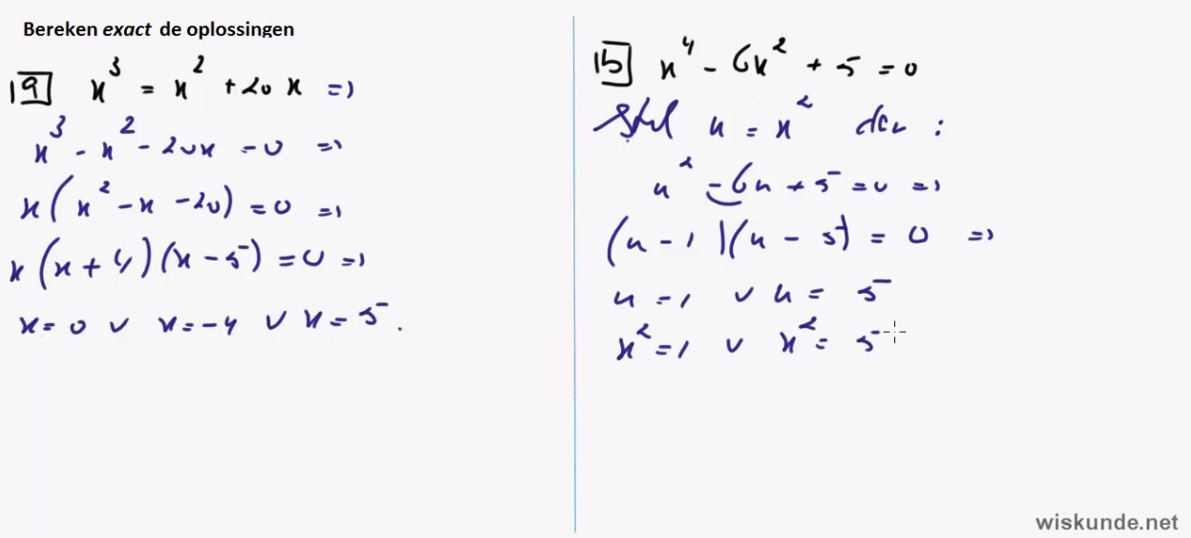 Bereken exact de oplossingen
1a x³ = x² + 20x ⇒
x³ - x² - 20x = 0 ⇒
x(x² - x - 20) = 0 ⇒
x(x + 4)(x - 5) = 0 ⇒
x = 0 ∨ x = -4 ∨ x = 5.
1b x⁴ - 6x² + 5 = 0
Stel u = x² dan :
u² - 6u + 5 = 0 ⇒
(u - 1)(u - 5) = 0 ⇒
u = 1 ∨ u = 5
x² = 1 ∨ x² = 5
wiskunde.net